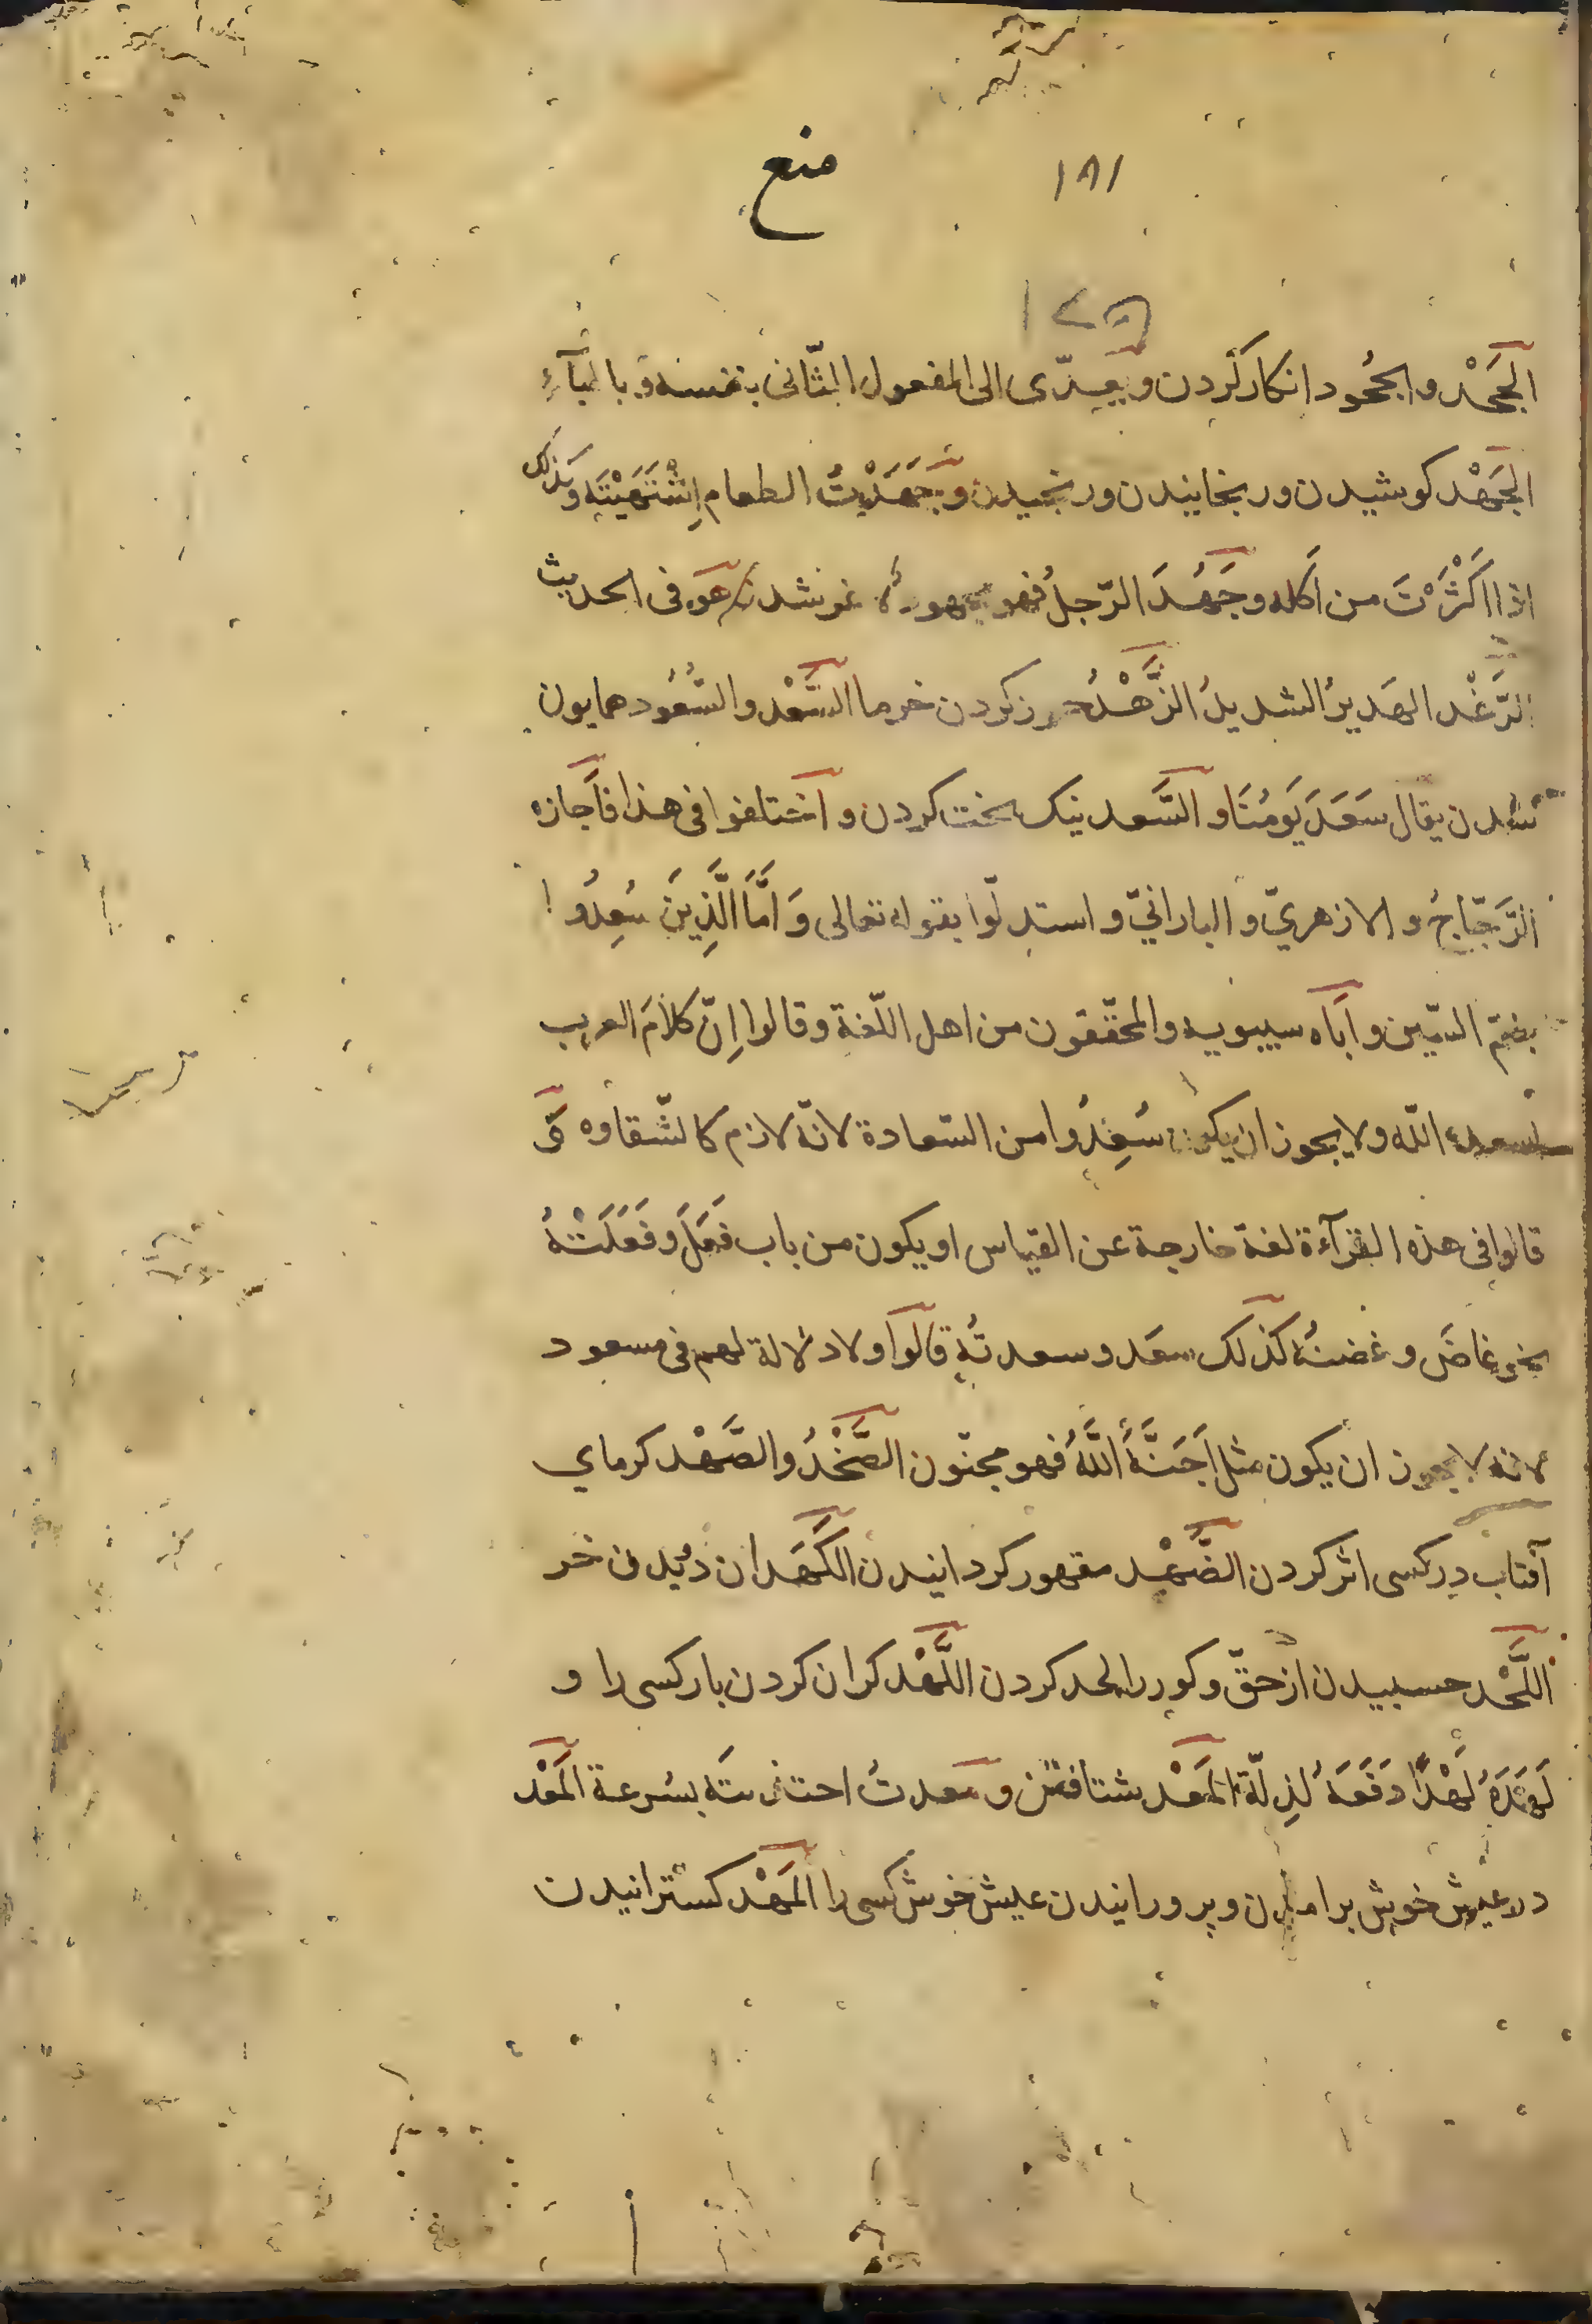 ۱۸۱ منع
الجَحْد والجُحُود انكار كردن ويعدّى الى المفعول الثّانى بنفسه وبالبآء
الجَهْد كوشيدن ورنجانيدن ورنجيدن وجَهَدْتُ الطعام اِشْتَهَيْتَه وكذلك
اذا اَكْثَرْتَ من اَكله وجَهُدَ الرّجلُ فهو مجهود شدن هو فى الحديث
الرَّغْد الهَديرُ الشديدُ الزَّهْدُ حرز كردن خرما السَّعْد والسُّعُود همايون
شدن يقال سَعَدَ يَومُنَا والسَّعد نيك بخت كردن واختلفوا فى هذا فاَجازه
الزَّجّاجُ والازهريّ والبارانيّ واستدلّوا بقوله تعالى وَاَمَّا الَّذِينَ سُعِدُوا
بضمّ السّين واَباه سيبويه والمحقّقون من اهل اللّغة وقالوا اِنّ كلامَ العرب
اسعده اللّه ولا يجوز ان يكون سُعِدُوا من السّعادة لانّه لازم كالشّقاوه وَ
قالوا فى هذه القرآءة لغة خارجة عن القياس او يكون من باب فَعَلَ وفَعَلْتُهُ
نحو غاضَ وغضتُه كذلك سعَد وسعدتُه قالوا ولا دلالة لهم فى مسعود
لانّه لا يجوز ان يكون مثل اَجَنَّهُ اللَّهُ فهو مجنّون الصَّخْدُ والصَّهْد كرماي
آفتاب در كسى اثر كردن الضَّهْد مقهور كردانيدن الكَهَدان دويدن خر
اللَّحْد حسبيدن از حقّ وكور را لحد كردن اللَّهْد كران كردن بار كسى را و
لَهَدَهُ لَهْدًا دَفَعَهُ لذِلّة المَعْد شتافتن ومعدتُ بسُرعة المَغْد
در عيش خوش برامدن وپرورانيدن عيش خوش كسى را المَهْد كسترانيدن